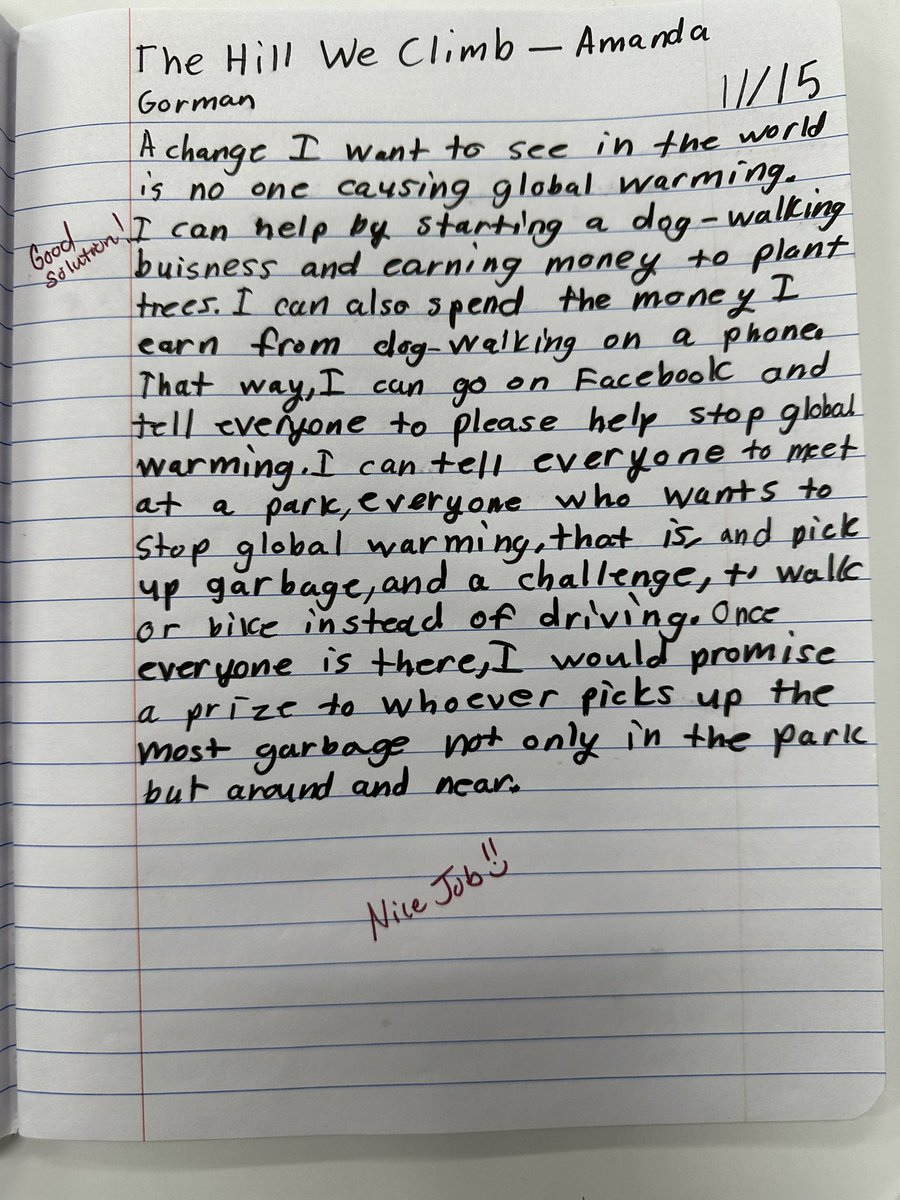 The Hill We Climb — Amanda
Gorman
11/15
A change I want to see in the world
is no one causing global warming.
Good
solution!
I can help by starting a dog-walking
buisness and earning money to plant
trees. I can also spend the money I
earn from dog-walking on a phone.
That way, I can go on Facebook and
tell everyone to please help stop global
warming. I can tell everyone to meet
at a park, everyone who wants to
stop global warming, that is, and pick
up garbage, and a challenge, to walk
or bike instead of driving. Once
everyone is there, I would promise
a prize to whoever picks up the
most garbage not only in the park
but around and near.
Nice Job!!